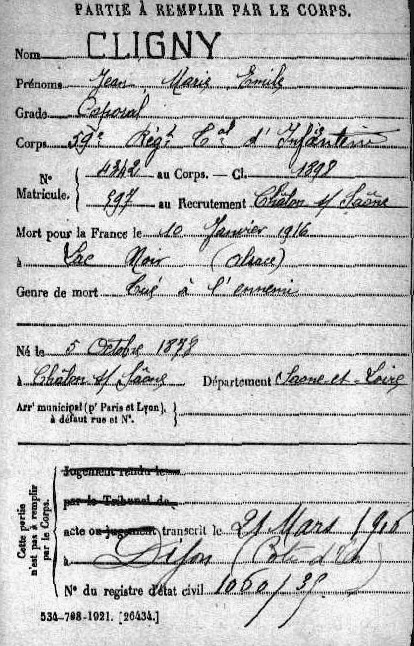 PARTIE À REMPLIR PAR LE CORPS.
Nom CLIGNY
Prénoms Jean Marie Emile
Grade Caporal
Corps 59e Régt d'Infanterie
N° Matricule. 4342 au Corps. — Cl. 1898
797 au Recrutement Châlon s/ Saône
Mort pour la France le 10 Janvier 1916
à Lac Noir (Alsace)
Genre de mort Tué à l'ennemi
Né le 5 Octobre 1878
à Châlon s/ Saône Département Saone-et-Loire
Arrt municipal (pr Paris et Lyon), à défaut rue et N°.
Cette partie n'est pas à remplir par le Corps.
Jugement rendu le
par le Tribunal de
acte ou jugement transcrit le 21 Mars 1916
à Dijon (Côte d'Or)
N° du registre d'état civil 1060/35
534-708-1921. [26434.]